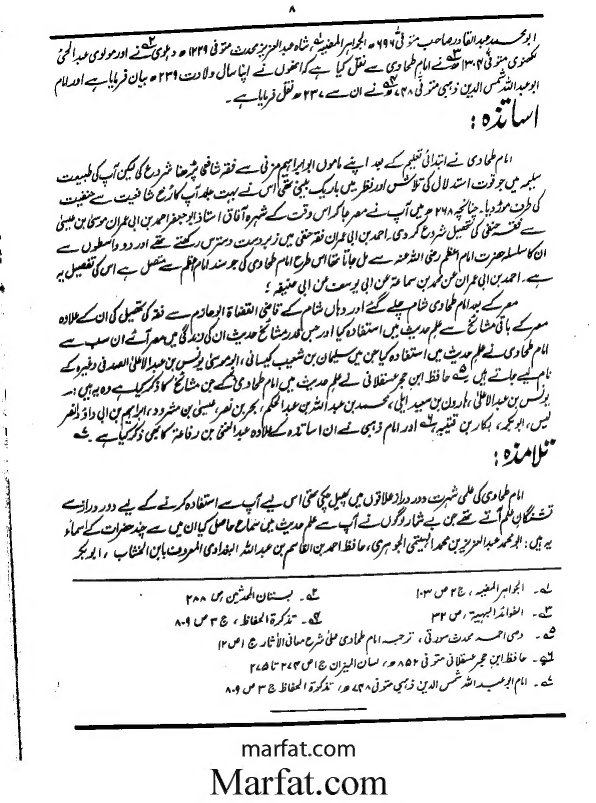 ۸
ابو محمد عبدالقادر صاحب متوفی ۶۹۶ھ الجواہر المضیہ ۱؎، شاہ عبدالعزیز محدث متوفی ۱۲۲۹ھ دہلوی ۲؎ نے اور مولوی عبدالحئ
لکھنوی متوفی ۱۳۰۴ھ ۳؎ نے امام طحاوی سے نقل کیا ہے کہ انھوں نے اپنا سال ولادت ۲۳۹ھ بیان فرمایا ہے اور امام
ابو عبداللہ شمس الدین ذہبی متوفی ۷۴۸ھ ۴؎ نے ان سے ۲۳۷ھ نقل فرمایا ہے۔
اساتذہ:
امام طحاوی نے ابتدائی تعلیم کے بعد اپنے ماموں ابو ابراہیم مزنی سے فقہ شافعی پڑھنا شروع کی لیکن آپ کی طبیعت
سلیمہ میں جو قوت استدلال کی تلاش اور نظر میں باریک بینی تھی اس نے بہت جلد آپ کا رُخ شافعیت سے حنفیت
کی طرف موڑ دیا۔ چنانچہ ۲۶۸ھ میں آپ نے مصر جا کر اس وقت کے شہرہ آفاق استاذ ابو جعفر احمد بن ابی عمران موسیٰ بن عیسیٰ
سے فقہ حنفی کی تحصیل شروع کر دی۔ احمد بن ابی عمران فقہ حنفی میں زبردست دسترس رکھتے تھے اور دو واسطوں سے
ان کا سلسلہ حضرت امام اعظم رضی اللہ عنہ سے مل جاتا تھا اس طرح امام طحاوی کی جو سند امام اعظم سے متصل ہے اس کی تفصیل یہ
ہے۔ احمد بن ابی عمران عن محمد بن سماعۃ عن ابی یوسف عن ابی حنیفہ؛
مصر کے بعد امام طحاوی شام چلے گئے اور وہاں شام کے قاضی القضاۃ ابو حازم سے فقہ کی تحصیل کی ان کے علاوہ
مصر کے باقی مشائخ سے علم حدیث میں استفادہ کیا اور جس قدر مشائخ حدیث ان کی زندگی میں مصر آئے ان سب سے
امام طحاوی نے علم حدیث میں استفادہ کیا جن میں سلیمان بن شعیب کیسانی، ابو موسیٰ یونس بن عبدالاعلیٰ الصدفی وغیرہ کے
نام لیے جاتے ہیں ۵؎ حافظ ابن حجر عسقلانی نے علم حدیث میں امام طحاوی کے جن مشائخ کا ذکر کیا ہے وہ یہ ہیں:۔
یونس بن عبدالاعلیٰ، ہارون بن سعید ایلی، محمد بن عبداللہ بن عبدالحکم، بحر بن نصر، عیسیٰ بن مثرود، ابراہیم بن ابی داؤد
لیس، ابو بکرہ، بکار بن قتیبہ ۶؎ اور امام ذہبی نے ان اساتذہ کے علاوہ عبدالغنی بن رفاعۃ کا بھی ذکر کیا ہے ۷؎
تلامذہ:
امام طحاوی کی علمی شہرت دور دراز علاقوں میں پھیل چکی تھی اس لیے آپ سے استفادہ کرنے کے لیے دور دراز سے
تشنگانِ علم آتے تھے جن بے شمار لوگوں نے آپ سے علم حدیث میں سماع حاصل کیا ان میں سے چند حضرات کے اسماء
یہ ہیں: ابو محمد عبدالعزیز بن محمد الہیتمی الجوہری، حافظ احمد بن القاسم بن عبداللہ البغدادی المعروف بابن الخشاب، ابوبکر
۱؎ الجواہر المضیہ، ج ۲ ص ۱۰۳ ۲؎ بستان المحدثین، ص ۲۸۸
۳؎ الفوائد البہیۃ، ص ۳۲ ۴؎ تذکرۃ الحفاظ، ج ۳ ص ۸۰۹
۵؎ وصی احمد محدث سورتی، ترجمہ امام طحاوی علیٰ شرح معانی الآثار ج ۱ ص ۱۲
۶؎ حافظ ابن حجر عسقلانی متوفی ۸۵۲ھ، لسان المیزان ج ۱ ص ۲۷۴ تا ۲۷۵
۷؎ امام ابو عبداللہ شمس الدین ذہبی متوفی ۷۴۸ھ، تذکرۃ الحفاظ ج ۳ ص ۸۰۹
marfat.com
Marfat.com